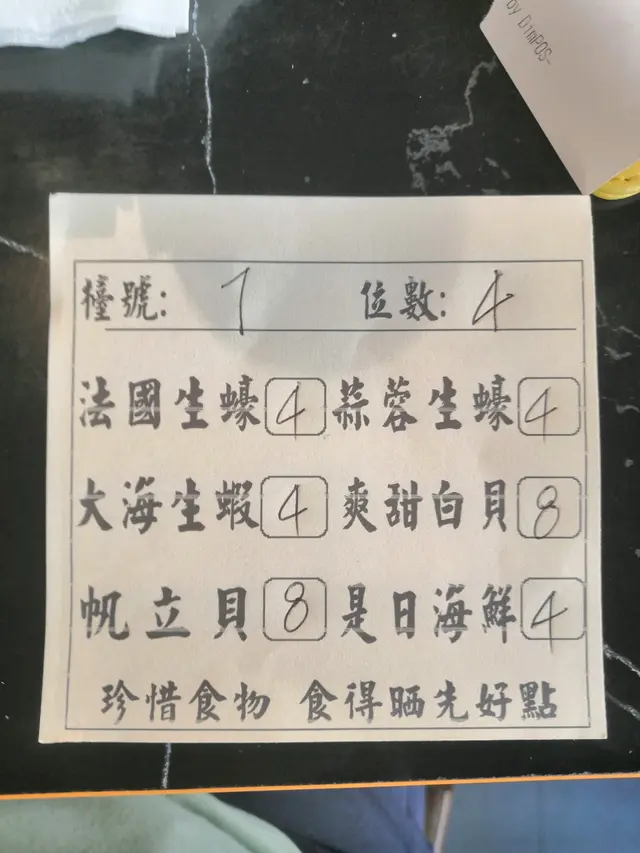 by DimPOS~
檯號: 7 位數: 4
法國生蠔 4 蒜蓉生蠔 4
大海生蝦 4 爽甜白貝 8
帆立貝 8 是日海鮮 4
珍惜食物 食得晒先好點